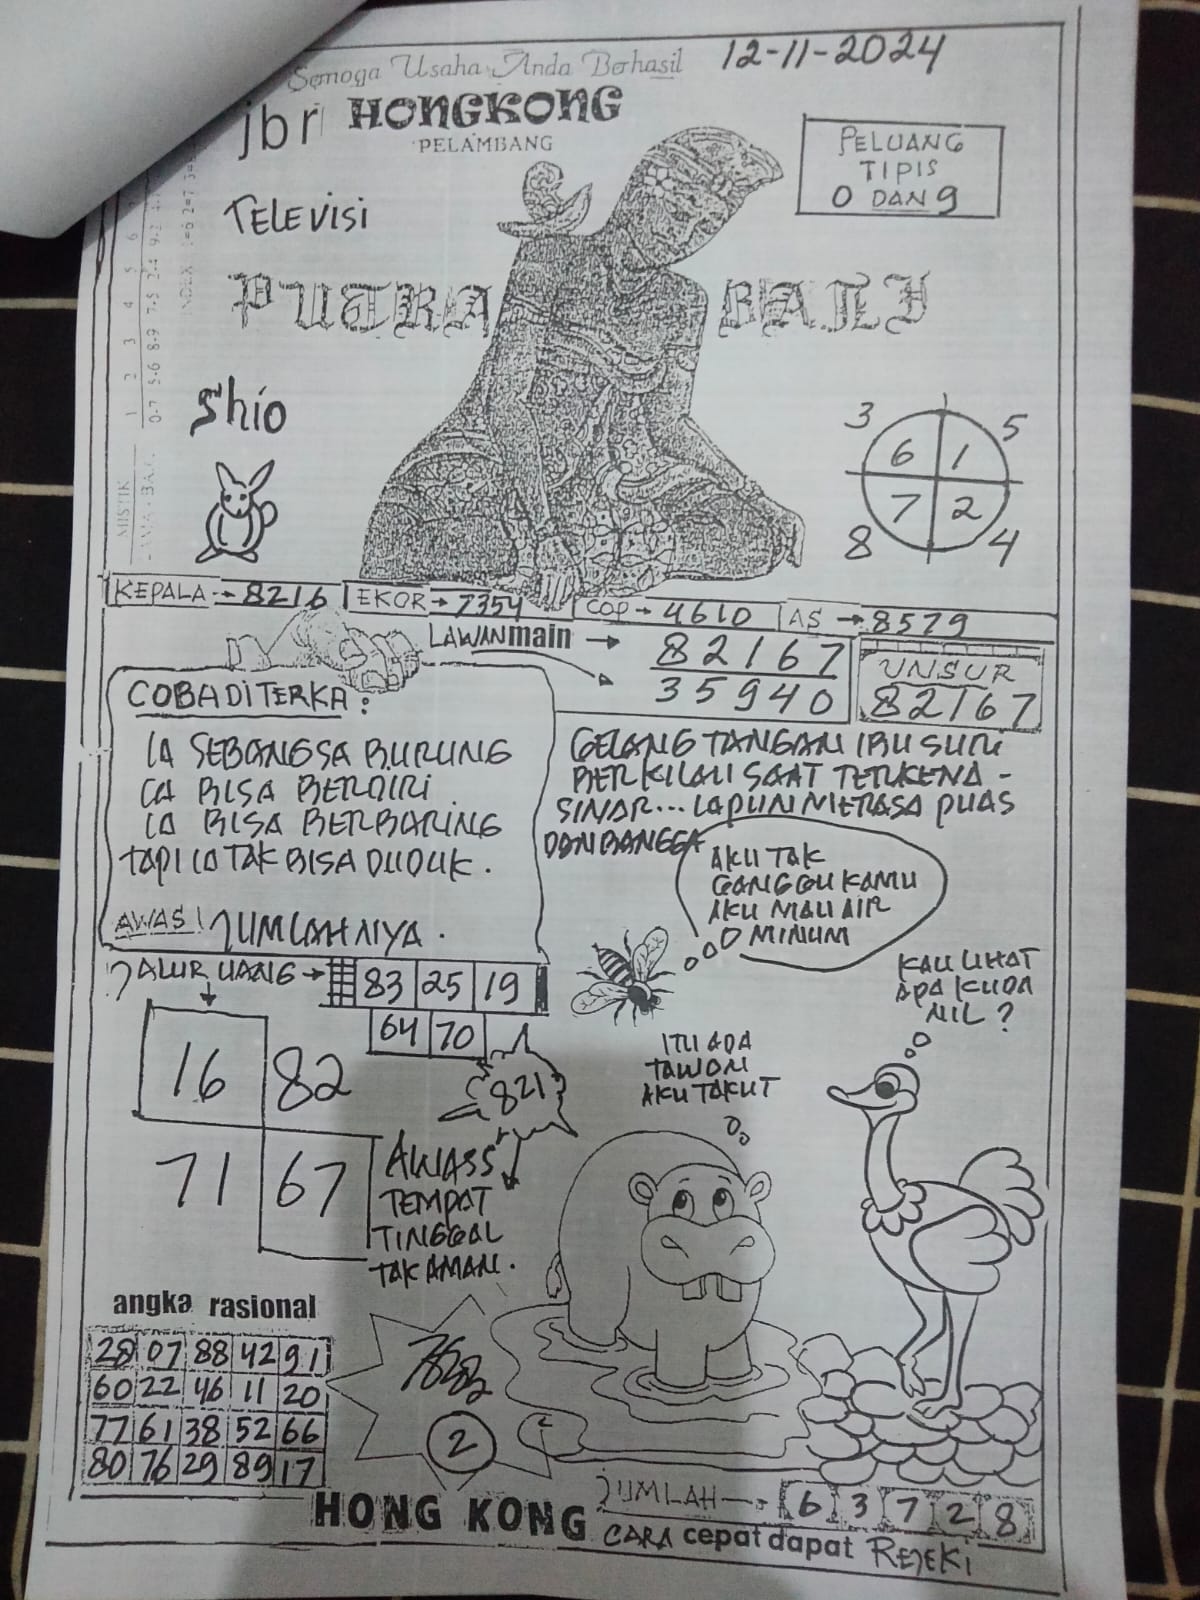 Semoga Usaha Anda Berhasil
12-11-2024
jbr HONGKONG
PELAMBANG
PELUANG
TIPIS
0 DAN 9
TELEVISI
PUTRA BALI
Shio
MISTIK
1 2 3 4 5 6
0-7 5-6 8-9 7-5 2-4 9-2
INDEX
3 5
6 1
7 2
8 4
KEPALA → 8216 EKOR → 7354 COP → 4610 AS → 8579
LAWAN main → 82167
35940
UNSUR
82167
COBA DITERKA :
IA SEBANGSA BURUNG
IA BISA BERDIRI
IA BISA BERBARING
TAPI IA TAK BISA DUDUK .
AWAS ! JUMLAHNYA .
GELANG TANGAN IBU SURI
BERKILAU SAAT TERKENA -
SINAR... IAPUN MERASA PUAS
DAN BANGGA
AKU TAK
GANGGU KAMU
AKU MAU AIR
MINUM
JALUR UANG → 83 25 19
64 70
16 82
71 67
821
AWASS
TEMPAT
TINGGAL
TAK AMAN .
KAU LIHAT
APA KUDA
NIL ?
ITU ADA
TAWON
AKU TAKUT
angka rasional
28 07 88 42 91
60 22 46 11 20
77 61 38 52 66
80 76 29 89 17
2
HONG KONG
JUMLAH → 6 3 7 2 8
CARA cepat dapat REJEKI